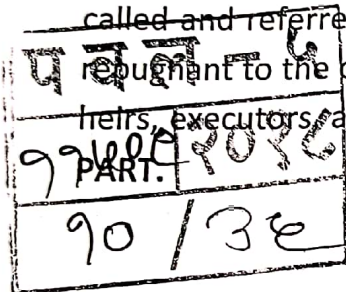 called and referre
प व ल - ५
repugnant to the
heirs, executors, a
PART. २०१८
१० /